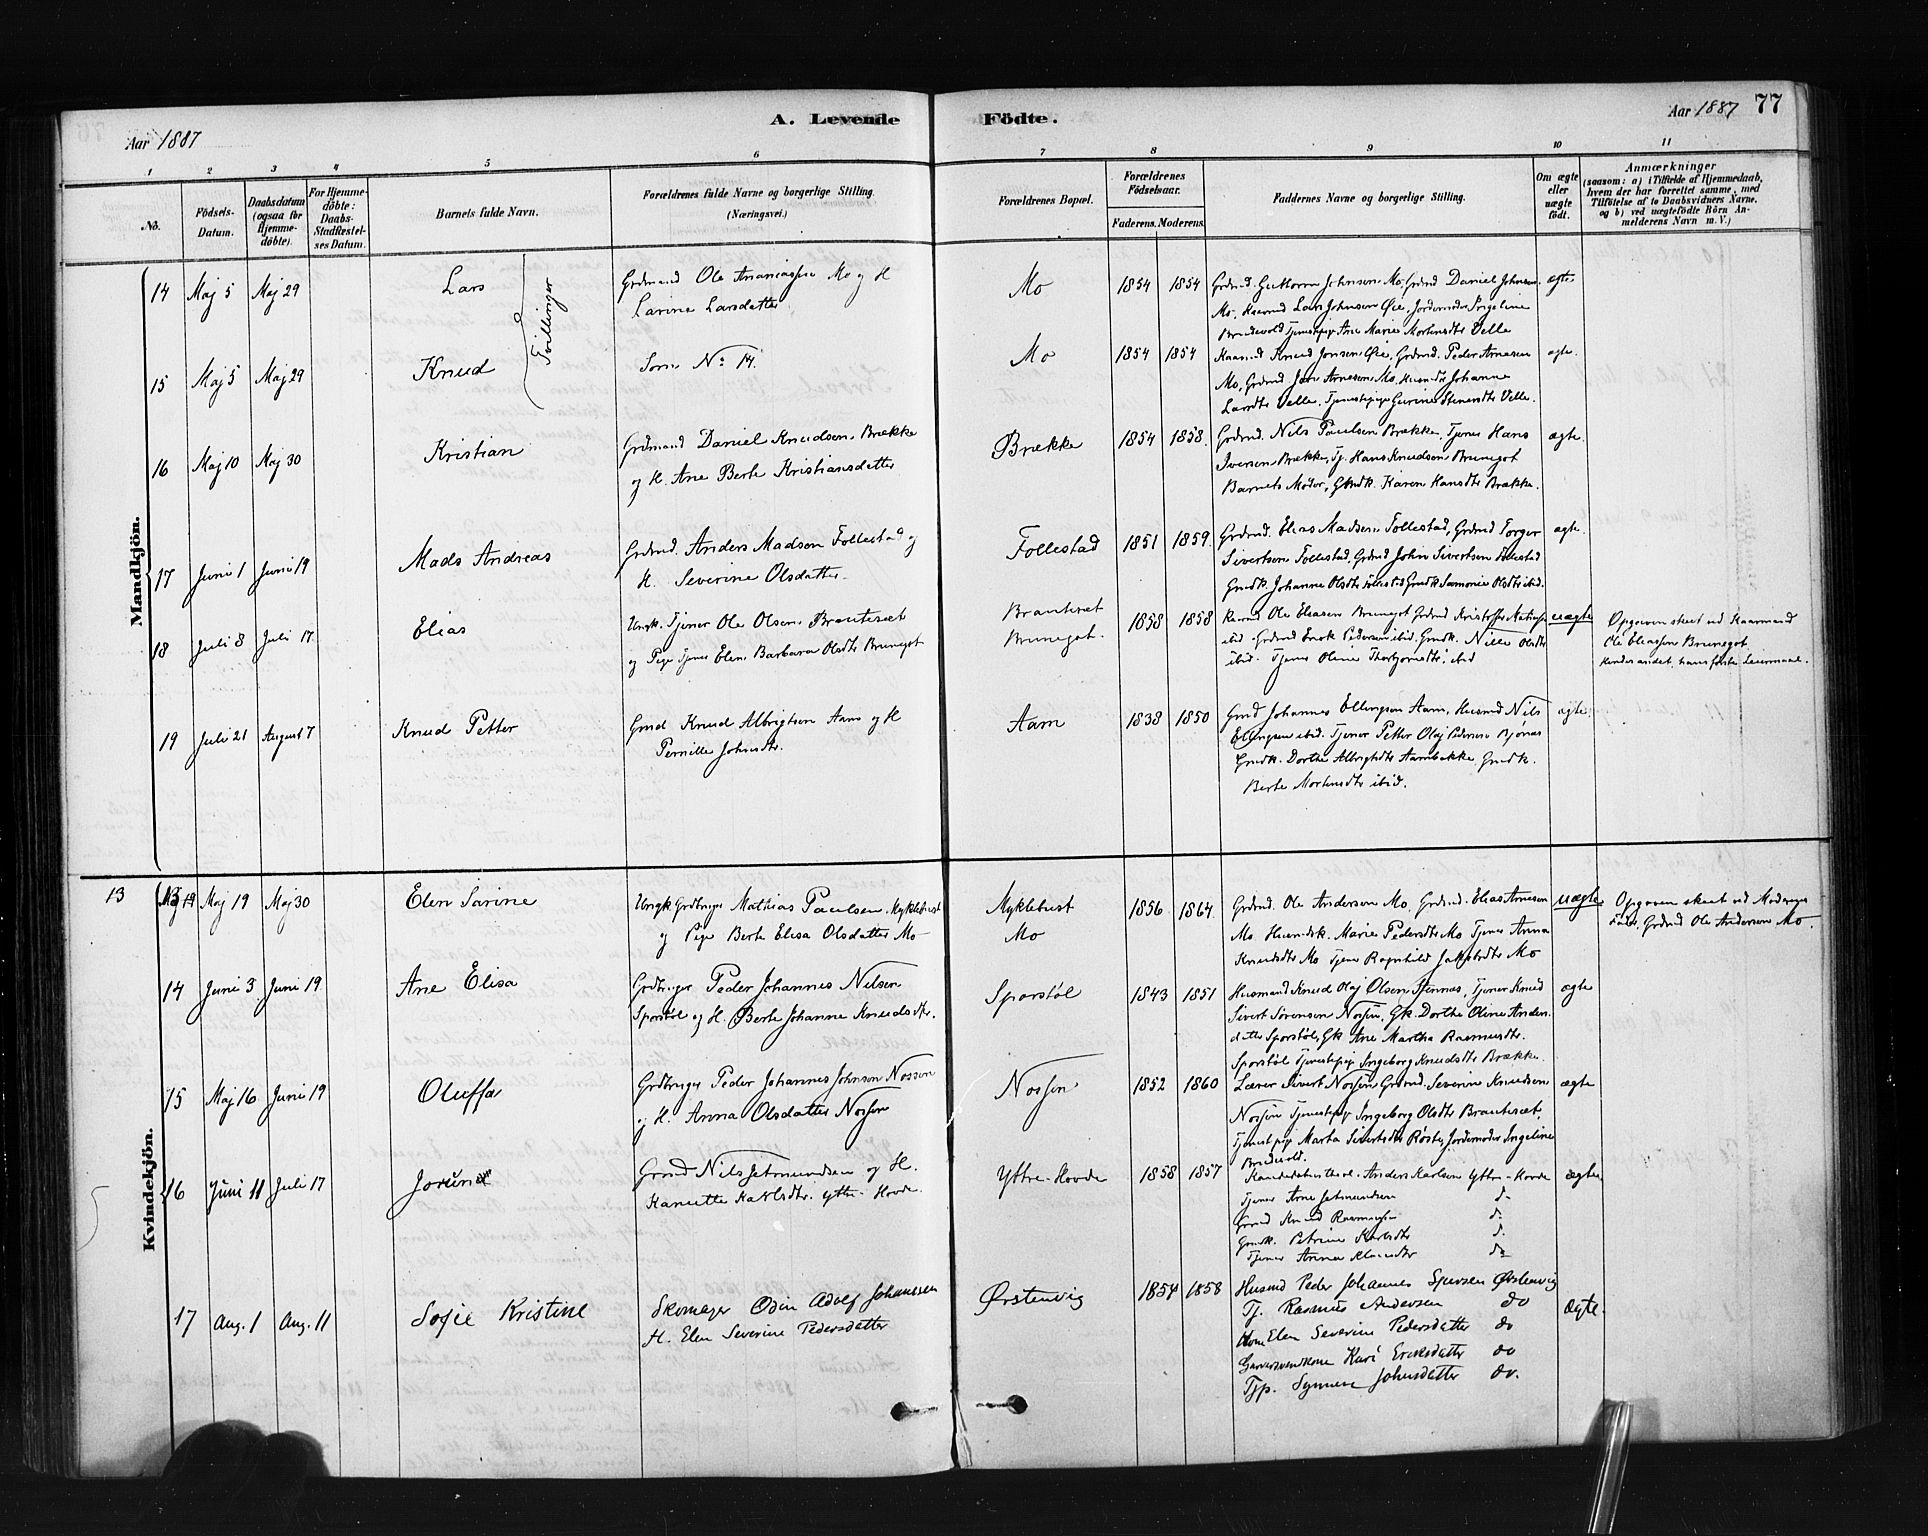 Aar 1887
A. Levende
Födte.
Aar 1887 77
1 2 3 4 5 6 7 8 9 10 11
No.
Födsels-
Datum.
Daabsdatum
(ogsaa for
Hjemme-
döbte).
For Hjemme-
döbte:
Daabs-
Stadfæstel-
ses Datum.
Barnets fulde Navn.
Forældrenes fulde Navne og borgerlige Stilling.
(Næringsvei.)
Forældrenes Bopæl.
Forældrenes
Födselsaar.
Faderens. Moderens.
Faddernes Navne og borgerlige Stilling.
Om ægte
eller
uægte
födt.
Anmærkninger
(saasom: a) i Tilfælde af Hjemmedaab,
hvem der har forrettet samme, med
Tilföielse af to Daabsvidners Navne,
og b) ved uægtefödte Börn An-
melderens Navn m. V.)
Mandkjön.
14 Maj 5 Maj 29 Lars
Tvillinger
Grdmand Ole Ananiassen Mo og H
Larine Larsdatter
Mo 1854 1854
Grdmd. Guttorm Johnsen Mo, Grdmd Daniel Johnsen
Mo, Kaarmd Lars Johnsen Øie, Jordemoder Ingeline
Brudevold Tjenestepige Ane Marie Mortensdtr Velle
ægte
15 Maj 5 Maj 29 Knud
Som No 14.
Mo 1854 1854
Kaarmd Knud Jonsen Øie, Grdmd. Peder Arnesen
Mo, Grdmd Jon Arnesen Mo, Johanne
Larsdtr Velle, Tjenestepige Gurine Velle.
ægte.
16 Maj 10 Maj 30 Kristian
Grdmand Daniel Knudsen Brække
og H. Ane Berte Kristiansdatter
Brække 1854 1858.
Grdmd. Nils Paulsen Brække, Tjener Hans
Iversen Brække, Tj. Hans Knudsen Brunegot
Barnets Moder, Gmdk. Karen Hansdtr Brække.
ægte.
17 Juni 1 Juni 19 Mads Andreas
Grdmd. Anders Madsen Follestad og
H. Severine Olsdatter
Follestad 1851 1859.
Grdmd. Elias Madsen Follestad, Grdmd Torger
Sivertsen Follestad, Grdmd John Sivertsen Follestad
Gmdk. Johanne Olsdtr Follestad Gmdk Olsdtr ibid.
ægte.
18 Juli 8 Juli 17 Elias
Ungk. Tjener Ole Olsen Brautaset
og Pige Tjener Elen Barbara Olsdtr Brunegot
Brautaset
Brunegot.
1858 1858
Kaarmd Ole Eliasen Brunegot Grdmd Kristoffer
ibid. Grdmd Enok Pedersen ibid. Gmdk. Nille Olsdtr
ibid. Tjener Oline ibid
uægte
Opgaven skeet ved Kaarmand
Ole Eliassen Brunegot
hendes andet, hans første Leiermaal.
19 Juli 21 August 7 Knud Petter
Gmd Knud Albrigtsen Aam og H
Pernille Johnsdtr.
Aam 1838 1850
Gmd Johannes Ellingsen Aam, Husmd Nils
Ellingsen ibid. Tjener Petter Olaj Pedersen Bjønes
Gmdk. Dorthe Albrigtsdtr Aambakke Gmdk.
Berte Mortensdtr ibid.
ægte.
Kvindekjön.
13
13 Maj 19 Maj 30 Elen Sarine
Ungk. Grdbruger Mathias Paulsen Myklebust
og Pige Berte Elisa Olsdatter Mo
Myklebust
Mo
1856. 1864.
Grdmd. Ole Andersen Mo, Grdmd. Elias Arnesen
Mo, Marie Pedersdtr Mo Tjener Anna
Knudsdtr Mo Tjener Ragnhild Mo
uægte
Opgaven skeet ved Moderens
Fader, Grdmd Ole Andersen Mo.
14 Juni 3 Juni 19 Ane Elisa
Grdbruger Peder Johannes Nilsen
Sporstøl og H. Berte Johanne Knudsdtr.
Sporstøl 1843 1851
Husmand Knud Olaj Olsen, Tjener Knud
Sivert Sørensen Nossen, Gk. Dorthe Oline Anders
datter Sporstøl, Gk Ane Martha Rasmusdtr.
Sporstøl Tjenestepige Ingeborg Knudsdtr Brække.
ægte
15 Maj 16 Juni 19 Oluffa
Grdbruger Peder Johannes Johnsen Nossen
og H. Anna Olsdatter Nossen
Nossen 1852 1860
Lærer Sivert Nossen Grdmd. Severin Knudsen
Nossen Tjenestepige Ingeborg Olsdtr Brautaset,
Tjenestpige Marta Sivertsdtr Røste, Jordemoder Ingeline
Brudevold.
ægte
16 Juni 11 Juli 17 Jorun
Grmd Nils Jetmundsen og H.
Hanette Karlsdtr. ytre-Hovde.
Yttre-Hovde 1858 1857
Anders Karlsen Yttre-Hovde
Tjener Arne Jetmundsen d-
Grmd Knud Rasmussen d.
Gmdk. Petrine Karlsdtr d.
Tjener Anna d-
ægte
17 Aug. 1 Aug. 11 Sofie Kristine
Skomager Odin Adolf Johanssen
H. Elen Severine Pedersdatter
Ørstenvig 1854 1858
Husmd Peder Johannes Sjursen Ørstenvig
Tj. Rasmus Andersen do
Elen Severine Pedersdatter do
Garversvendkone Kari Eriksdatter do
Tjp. Synneve Johnsdatter do.
ægte.